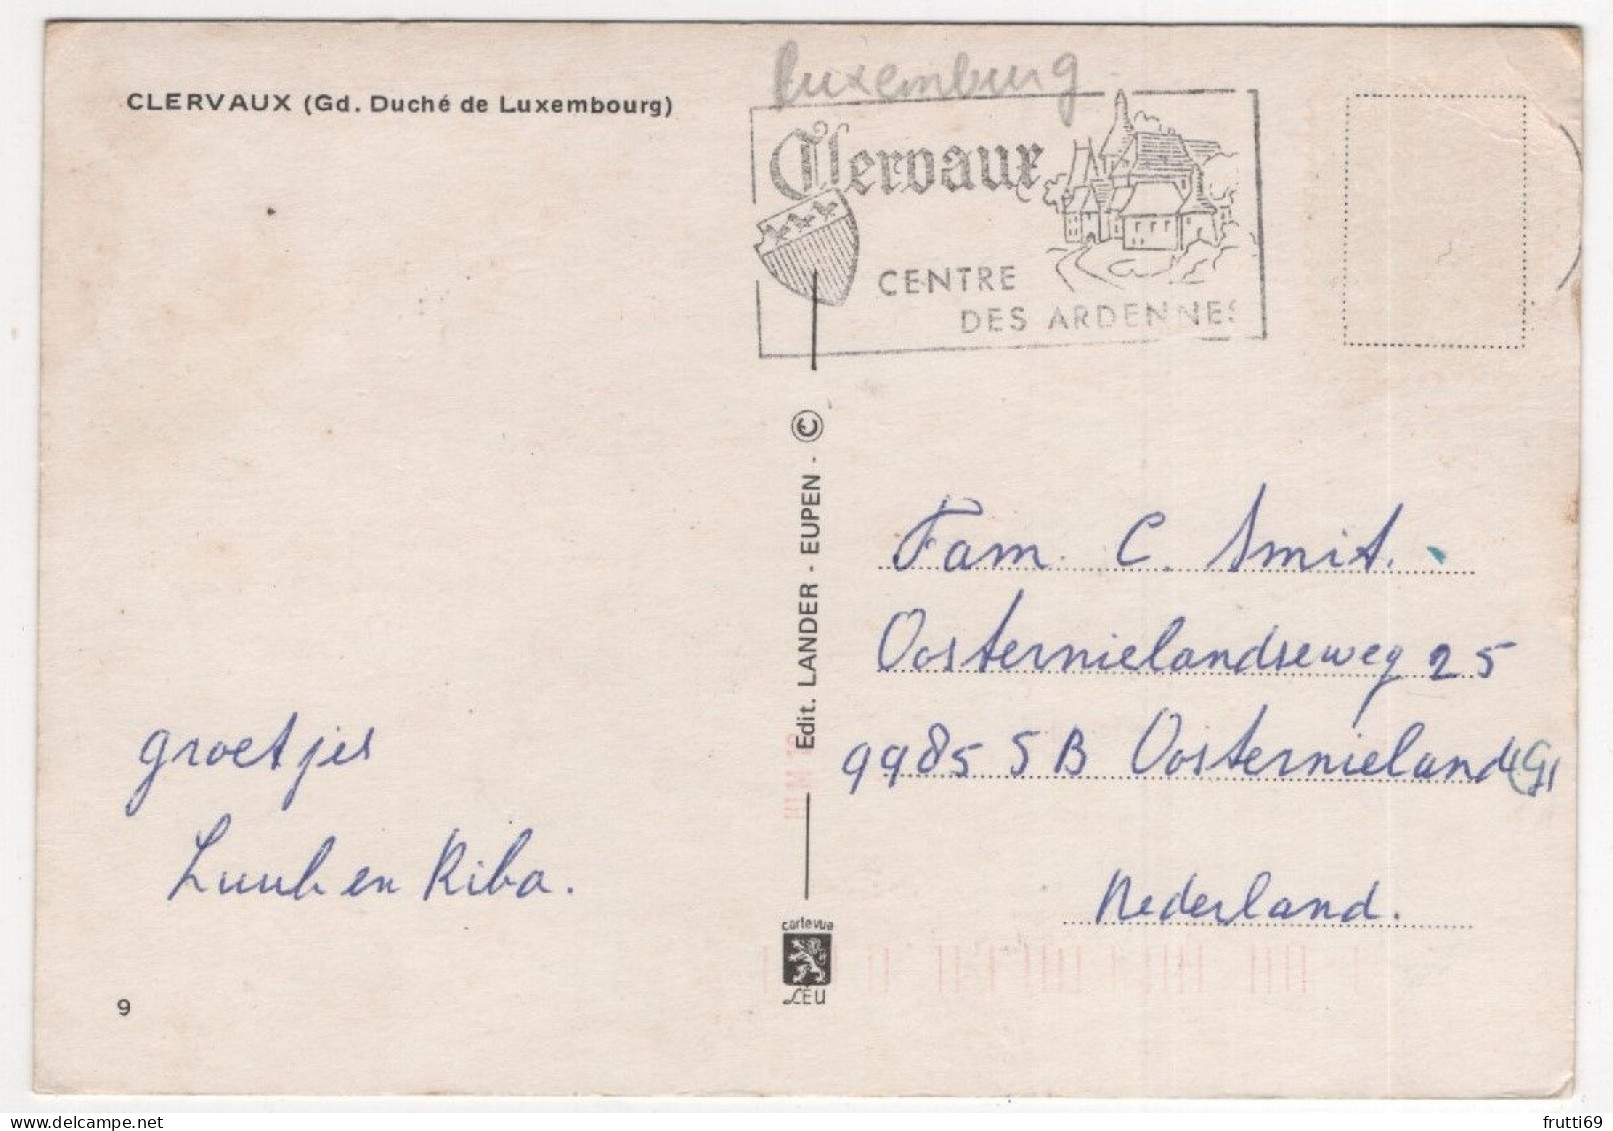 CLERVAUX (Gd. Duché de Luxembourg)
Luxemburg
Clervaux
CENTRE
DES ARDENNES
Edit. LANDER - EUPEN - ©
Fam. C. Smit.
Oosternielandseweg 25
9985 SB Oosternieland (G)
Nederland.
groetjes
Luub en Riba.
cartevue
LEU
9
frutti69